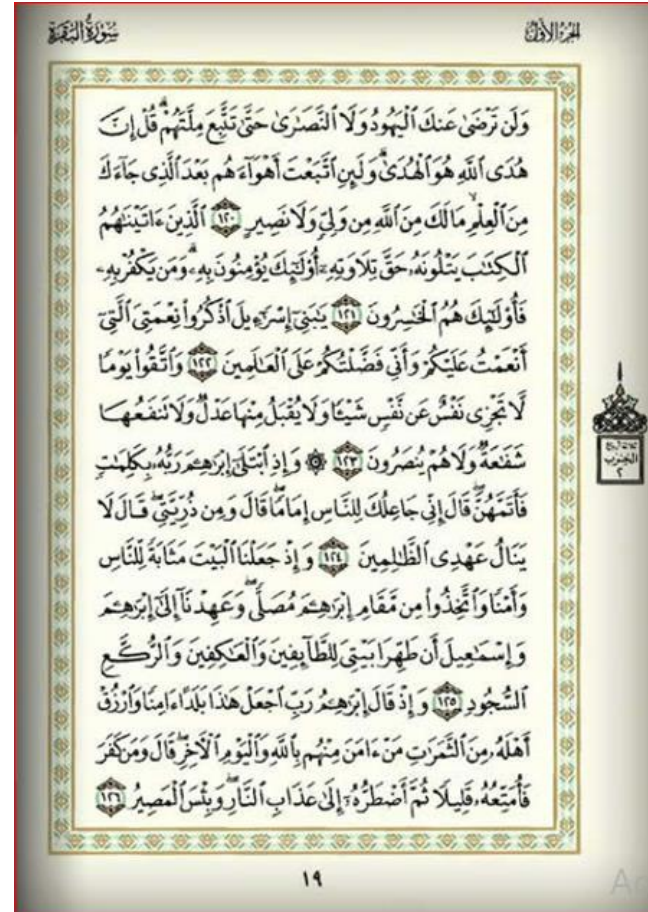 الجزء الأول
سورة البقرة
وَلَن تَرْضَىٰ عَنكَ ٱلْيَهُودُ وَلَا ٱلنَّصَٰرَىٰ حَتَّىٰ تَتَّبِعَ مِلَّتَهُمْ ۗ قُلْ إِنَّ
هُدَى ٱللَّهِ هُوَ ٱلْهُدَىٰ ۗ وَلَئِنِ ٱتَّبَعْتَ أَهْوَآءَهُم بَعْدَ ٱلَّذِى جَآءَكَ
مِنَ ٱلْعِلْمِ ۙ مَا لَكَ مِنَ ٱللَّهِ مِن وَلِىٍّ وَلَا نَصِيرٍ ١٢٠ ٱلَّذِينَ ءَاتَيْنَٰهُمُ
ٱلْكِتَٰبَ يَتْلُونَهُۥ حَقَّ تِلَاوَتِهِۦٓ أُو۟لَٰٓئِكَ يُؤْمِنُونَ بِهِۦ ۗ وَمَن يَكْفُرْ بِهِۦ
فَأُو۟لَٰٓئِكَ هُمُ ٱلْخَٰسِرُونَ ١٢١ يَٰبَنِىٓ إِسْرَٰٓءِيلَ ٱذْكُرُوا۟ نِعْمَتِىَ ٱلَّتِىٓ
أَنْعَمْتُ عَلَيْكُمْ وَأَنِّى فَضَّلْتُكُمْ عَلَى ٱلْعَٰلَمِينَ ١٢٢ وَٱتَّقُوا۟ يَوْمًا
لَّا تَجْزِى نَفْسٌ عَن نَّفْسٍ شَيْـًٔا وَلَا يُقْبَلُ مِنْهَا عَدْلٌ وَلَا تَنفَعُهَا
شَفَٰعَةٌ وَلَا هُمْ يُنصَرُونَ ١٢٣ ۞ وَإِذِ ٱبْتَلَىٰٓ إِبْرَٰهِۦمَ رَبُّهُۥ بِكَلِمَٰتٍ
فَأَتَمَّهُنَّ ۖ قَالَ إِنِّى جَاعِلُكَ لِلنَّاسِ إِمَامًا ۖ قَالَ وَمِن ذُرِّيَّتِى ۖ قَالَ لَا
يَنَالُ عَهْدِى ٱلظَّٰلِمِينَ ١٢٤ وَإِذْ جَعَلْنَا ٱلْبَيْتَ مَثَابَةً لِّلنَّاسِ
وَأَمْنًا وَٱتَّخِذُوا۟ مِن مَّقَامِ إِبْرَٰهِۦمَ مُصَلًّى ۖ وَعَهِدْنَآ إِلَىٰٓ إِبْرَٰهِۦمَ
وَإِسْمَٰعِيلَ أَن طَهِّرَا بَيْتِىَ لِلطَّآئِفِينَ وَٱلْعَٰكِفِينَ وَٱلرُّكَّعِ
ٱلسُّجُودِ ١٢٥ وَإِذْ قَالَ إِبْرَٰهِۦمُ رَبِّ ٱجْعَلْ هَٰذَا بَلَدًا ءَامِنًا وَٱرْزُقْ
أَهْلَهُۥ مِنَ ٱلثَّمَرَٰتِ مَنْ ءَامَنَ مِنْهُم بِٱللَّهِ وَٱلْيَوْمِ ٱلْءَاخِرِ ۖ قَالَ وَمَن كَفَرَ
فَأُمَتِّعُهُۥ قَلِيلًا ثُمَّ أَضْطَرُّهُۥٓ إِلَىٰ عَذَابِ ٱلنَّارِ ۖ وَبِئْسَ ٱلْمَصِيرُ ١٢٦
ثلاثة أرباع
الحزب
٢
١٩